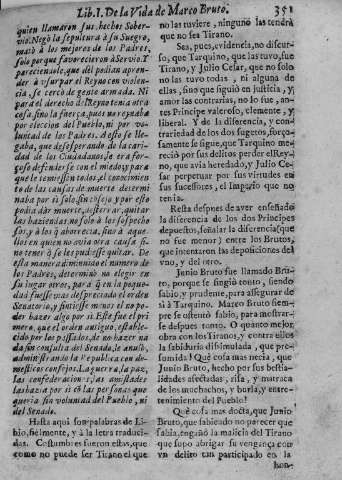 Lib. I. De la Vida de Marco Bruto. 351
quien llamaron sus hechos Sober-
vio. Negò la sepultura à su Suegro,
matò à los mejores de los Padres,
solo porque favorecieron à Servio. Y
pareciendole, que dèl podian apren-
der à usurpar el Reyno con violen-
cia, se cercò de gente armada. Ni
para el derecho de Reyno tenia otra
cosa sino la fuerça, pues no reynaba
por eleccion del Pueblo, ni por vo-
luntad de los Padres. A esto se lle-
gaba, que desesperando de la cari-
dad de los Ciudadanos, le era for-
çoso defenderse con el miedo; y para
que le temiessen todos, el conocimien-
to de las causas de muerte determi-
naba por si solo, sin consejo; y por esto
podia dàr muerte, desterrar, quitar
las haziendas no solo à los sospecho-
sos, y à los que aborrecia, sino à aque-
llos en quien no avia otra causa si-
no tener que se les pudiesse quitar. De
esta manera diminuido el numero de
los Padres, determinò no elegir en
su lugar otros, para que en la poque-
dad fuesse mas despreciado el orden
Senatorio, y sintiesse menos el no po-
der hazer algo por si. Este fue el pri-
mero, que el orden antiguo, estable-
cido por los passados, de no hazer na-
da sin consulta del Senado, le anulò,
administrando la Republica con do-
mesticos consejos. La guerra, la paz,
las confederaciones, las amistades
las hazia por si con las personas que
queria sin voluntad del Pueblo, ni
del Senado.
Hasta aqui son palabras de Li-
bio, fielmente, y à la letra traduci-
das. Costumbres fueron estas, que
como no puede ser Tirano el que
no las tuviere, ninguno las tendrà
que no sea Tirano.
Sea, pues, evidencia, no discur-
so, que Tarquino, que las tuvo, fue
Tirano, y Julio Cesar, que no solo
no las tuvo todas, ni alguna de
ellas, sino que siguiò en justicia, y
amor las contrarias, no lo fue, an-
tes Principe valeroso, clemente, y
liberal. Y de la diferencia, y con-
trariedad de los dos sugetos, forço-
samente se sigue, que Tarquino me-
reciò por sus delitos perder el Rey-
no, que avia heredado, y Julio Ce-
sar perpetuar por sus virtudes en
sus sucessores, el Imperio que no
tenia.
Resta despues de aver enseñado
la diferencia de los dos Principes
depuestos, señalar la diferencia (que
no fue menor) entre los Brutos,
que intentaron las deposiciones del
vno, y del otro.
Junio Bruto fue llamado Bru-
to, porque se fingiò tonto, siendo
sabio, y prudente, para assegurar de
sì à Tarquino. Marco Bruto siem-
pre se ostentò sabio, para mostrar-
se despues tonto. O quanto mejor
obra con los Tiranos, y contra ellos
la sabiduria dissimulada, que pre-
sumida! Què cosa mas necia, que
Junio Bruto, hecho por sus bestia-
lidades afectadas, risa, y matraca
de los muchachos, y burla, y entre-
tenimiento del Pueblo!
Què cosa mas docta, que Junio
Bruto, que sabiendo no parecer que
sabia, engañò la malicia del Tirano
que supo abrigar su vengança con
vn delito tan participado en la
hon-